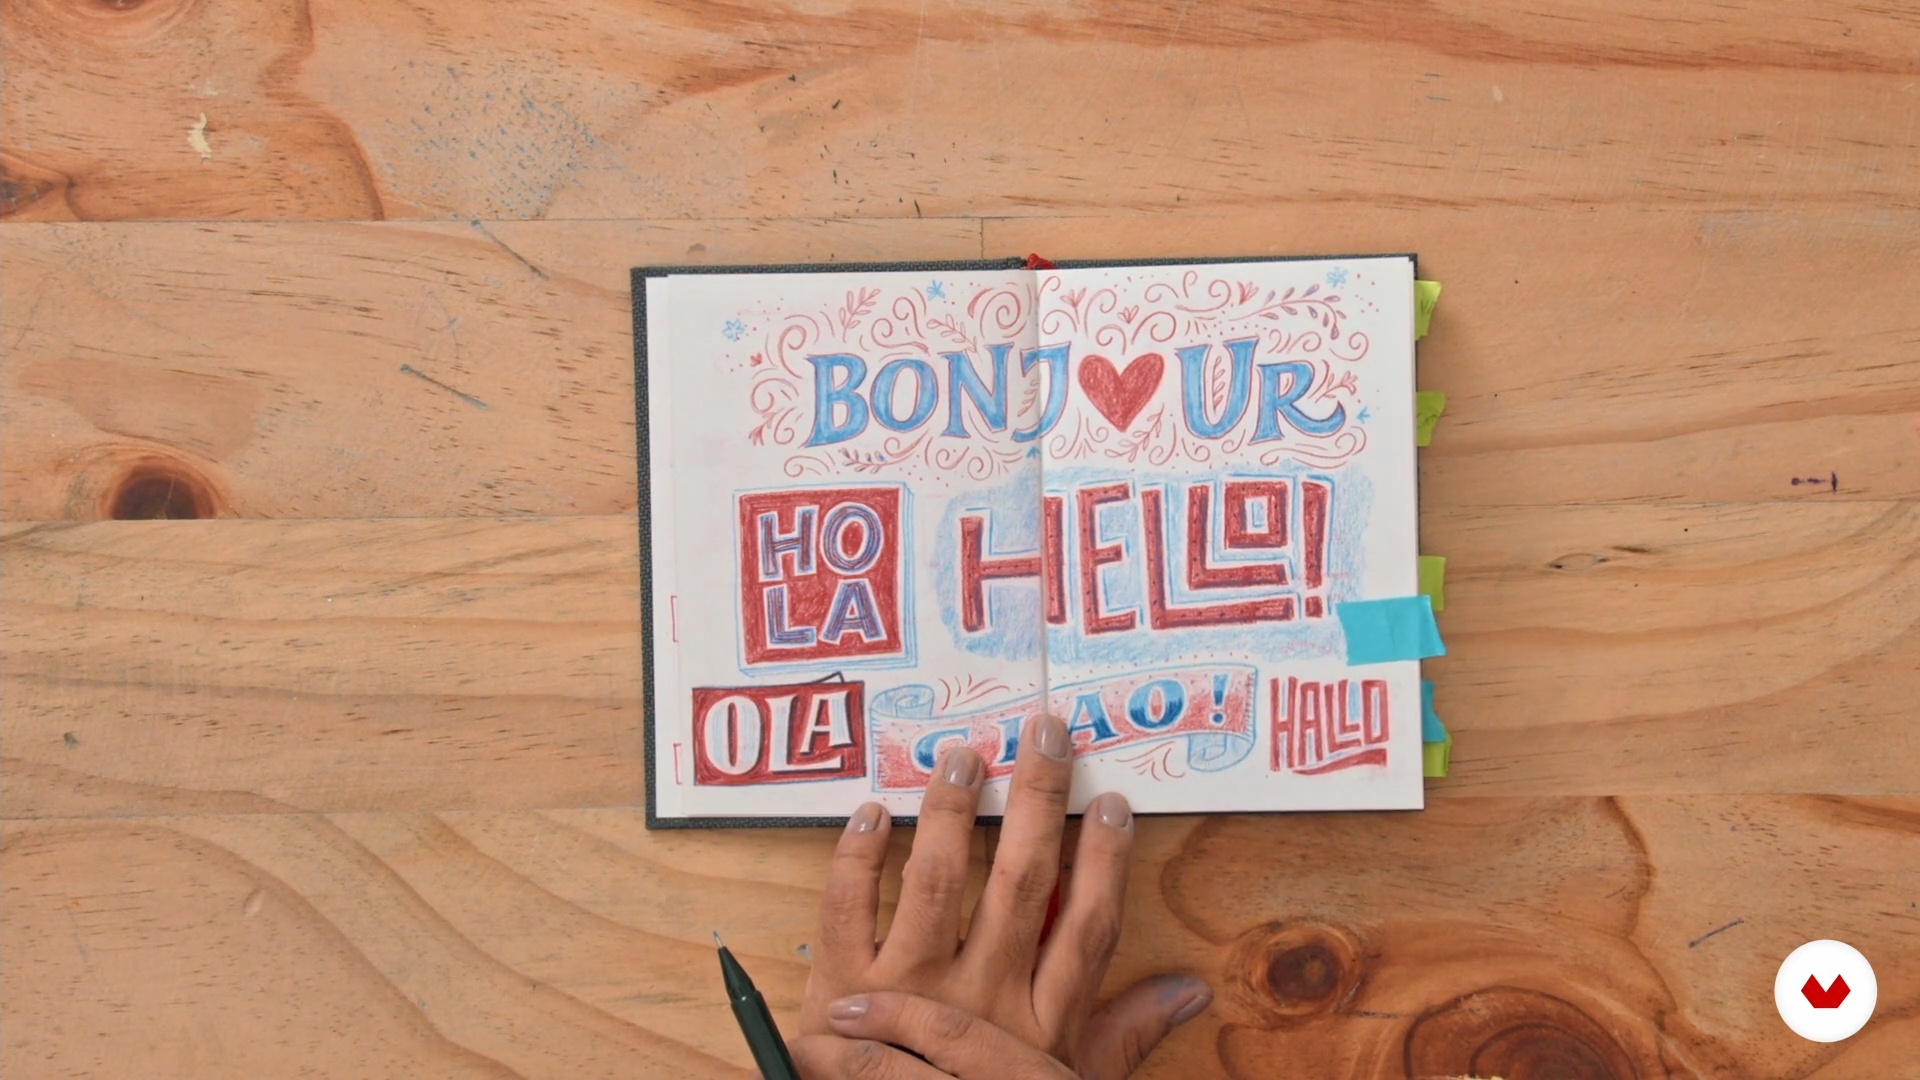 BONJ♥UR
HO
LA
HELLO!
OLA
CIAO!
HALLO